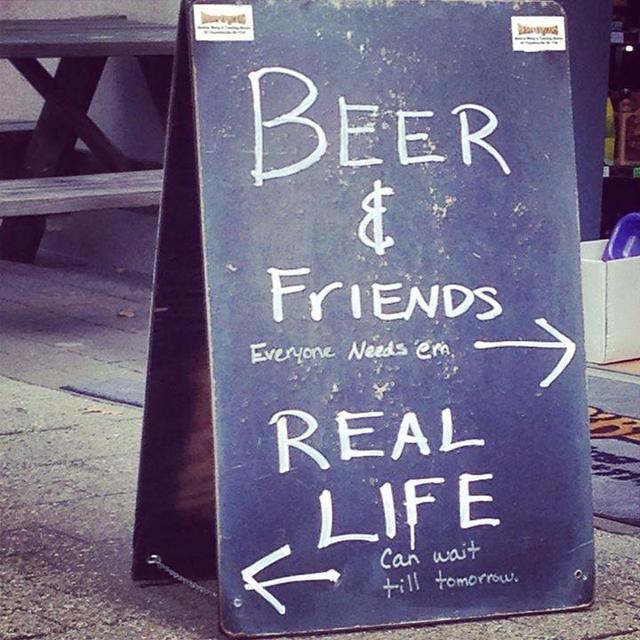 BEER
&
FRIENDS
Everyone Needs 'em
REAL
LIFE
Can wait
till tomorrow.